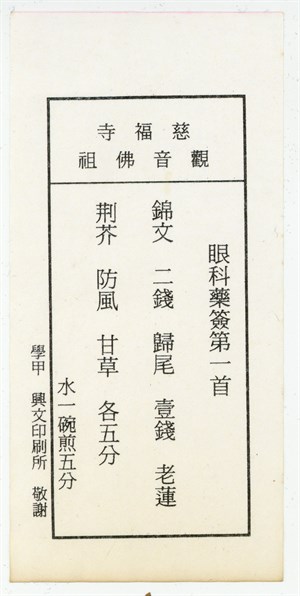 慈福寺
觀音佛祖
眼科藥簽第一首
錦文 二錢 歸尾 壹錢 老蓮
荆芥 防風 甘草 各五分
水一碗煎五分
學甲 興文印刷所 敬謝